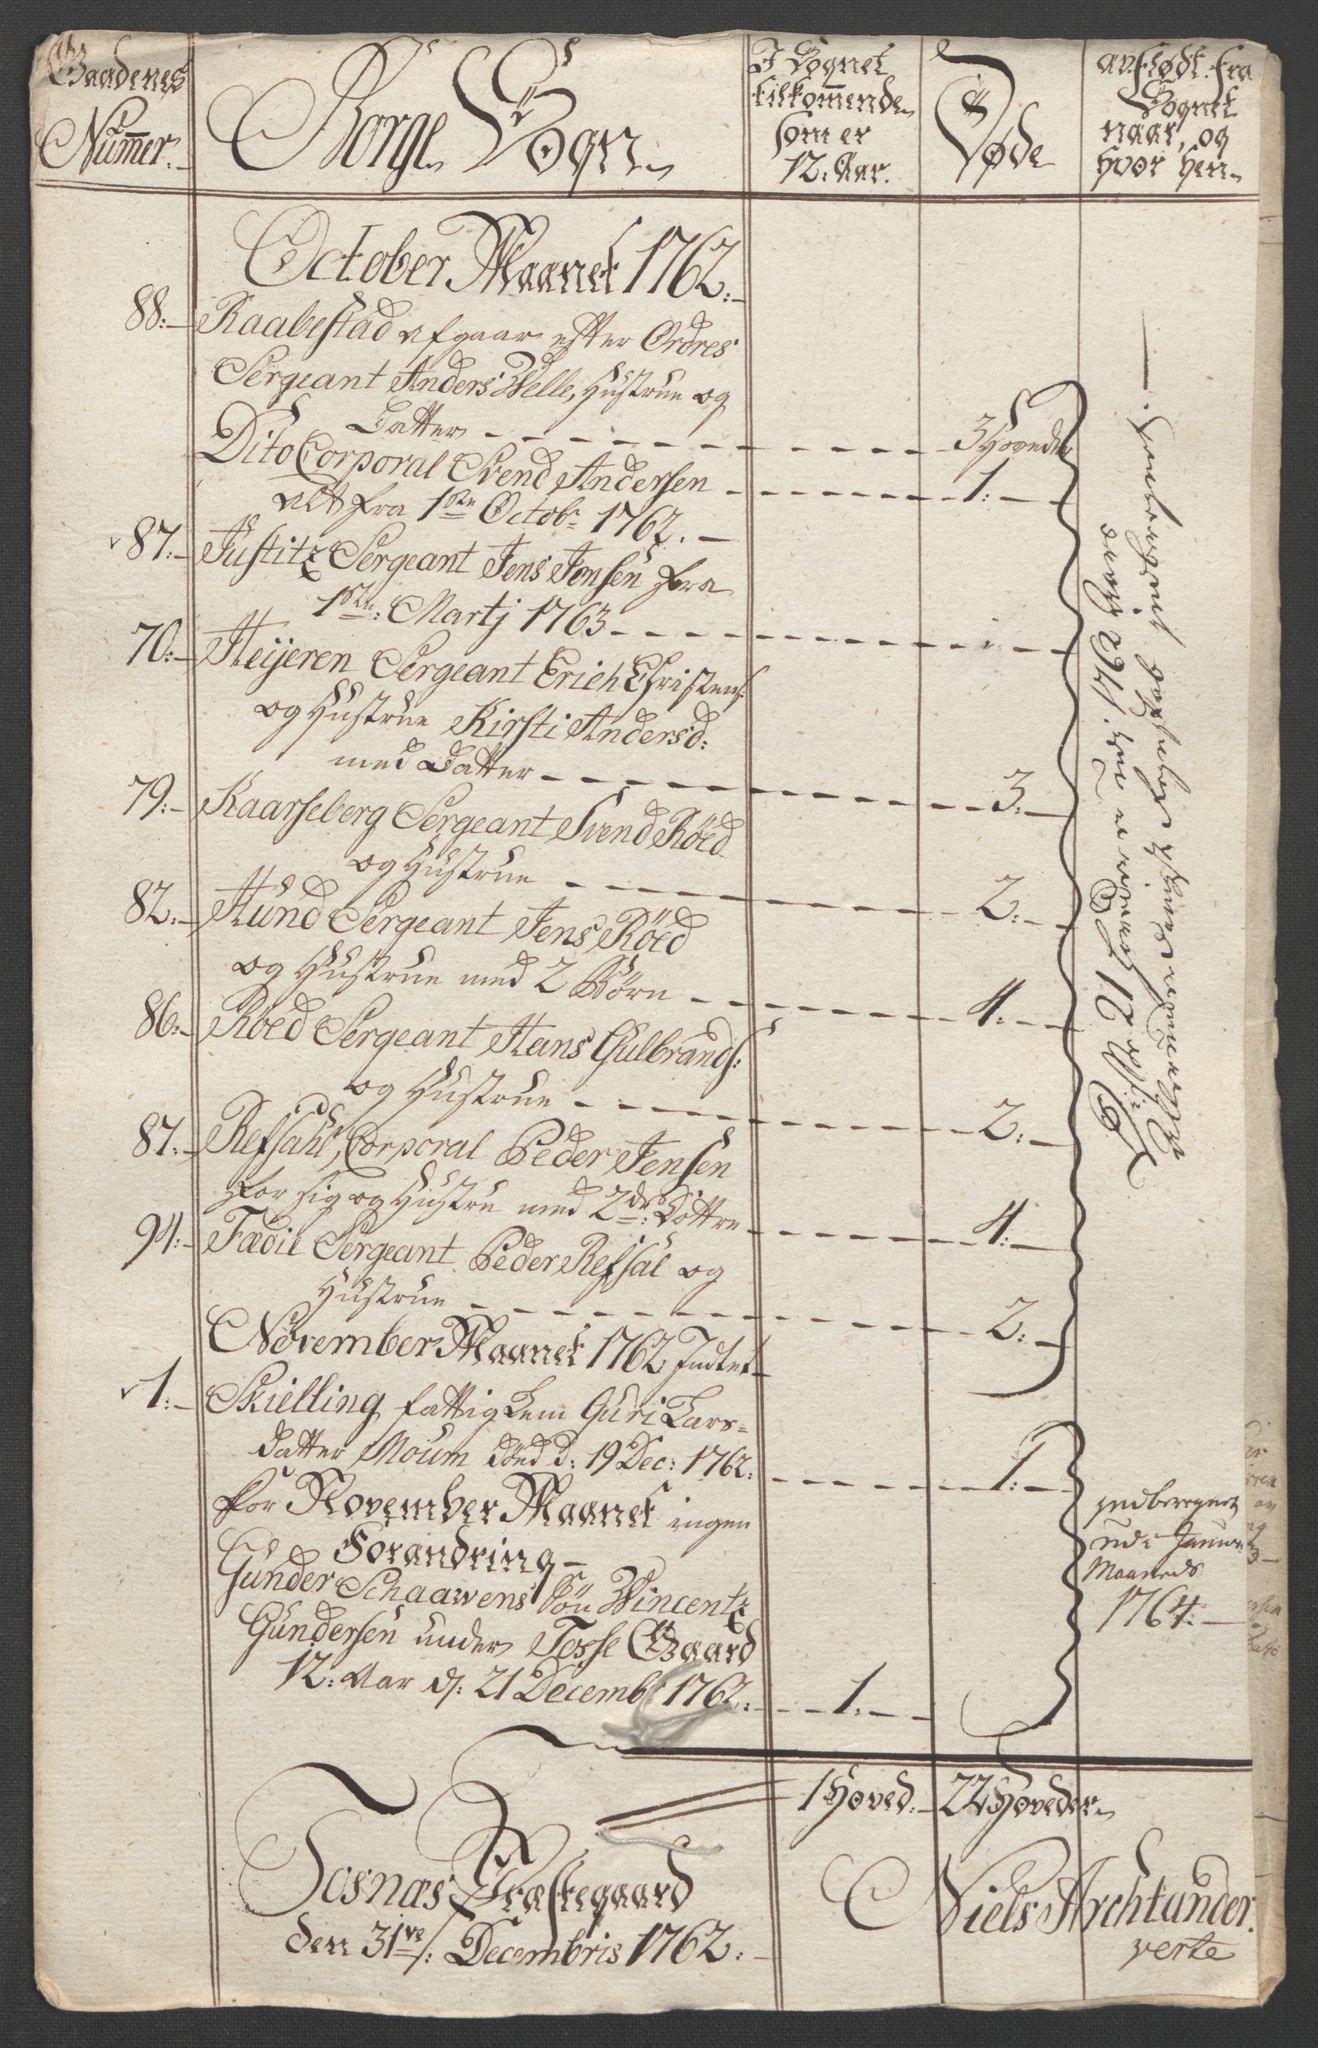 Gaadenes
Nummer.
Borge Sogn
I Sognet
tilkommende
som er
12. Aar.
Døde
anflødt fra
Sognet
naar, og
hvor hen
October Maanet 1762.
88. Raabestad afgaar efter Ordres
Sergeant Anders Welle, Hustrue og
Datter 3 Hoveder
Dito Corporal Svend Andersen 1.
alt fra 1ste Octobr 1762.
87. Justitz Sergeant Jens Jensen fra
1ste Martj 1763
70. Heijeren Sergeant Erich Christens:
og Hustrue Kirsti Andersd:
med Datter 3.
79. Kaarseberg Sergeant Svend Röed
og Hustrue 2.
82. Hund Sergeant Jens Röed
og Hustrue med 2 Børn 4.
86. Röed Sergeant Hans Gulbrands:
og Hustrue 2.
87. Refsahl, Corporal Peder Jensen
for sig og Hustru med 2de Döttre 4.
94. Tædie Sergeant Peder Refsal og
Hustrue 2.
November Maanet 1762 Intet
1. Skielling fattig Lem Guri Lars-
datter Moum död d: 19 Dec: 1762. 1.
for November Maanet ingen
Forandring
Gunder Schaawens Sön Wincentz
Gundersen under Tosse Gaard
12. Aar d: 21 Decembr 1762. 1.
indberegnet
udi Januar
Maaneds
1764.
1 Hoved. 22 Hoveder
Tosnæs Præstegaard
den 31te Decembris 1762.
Niels Achtander.
verte